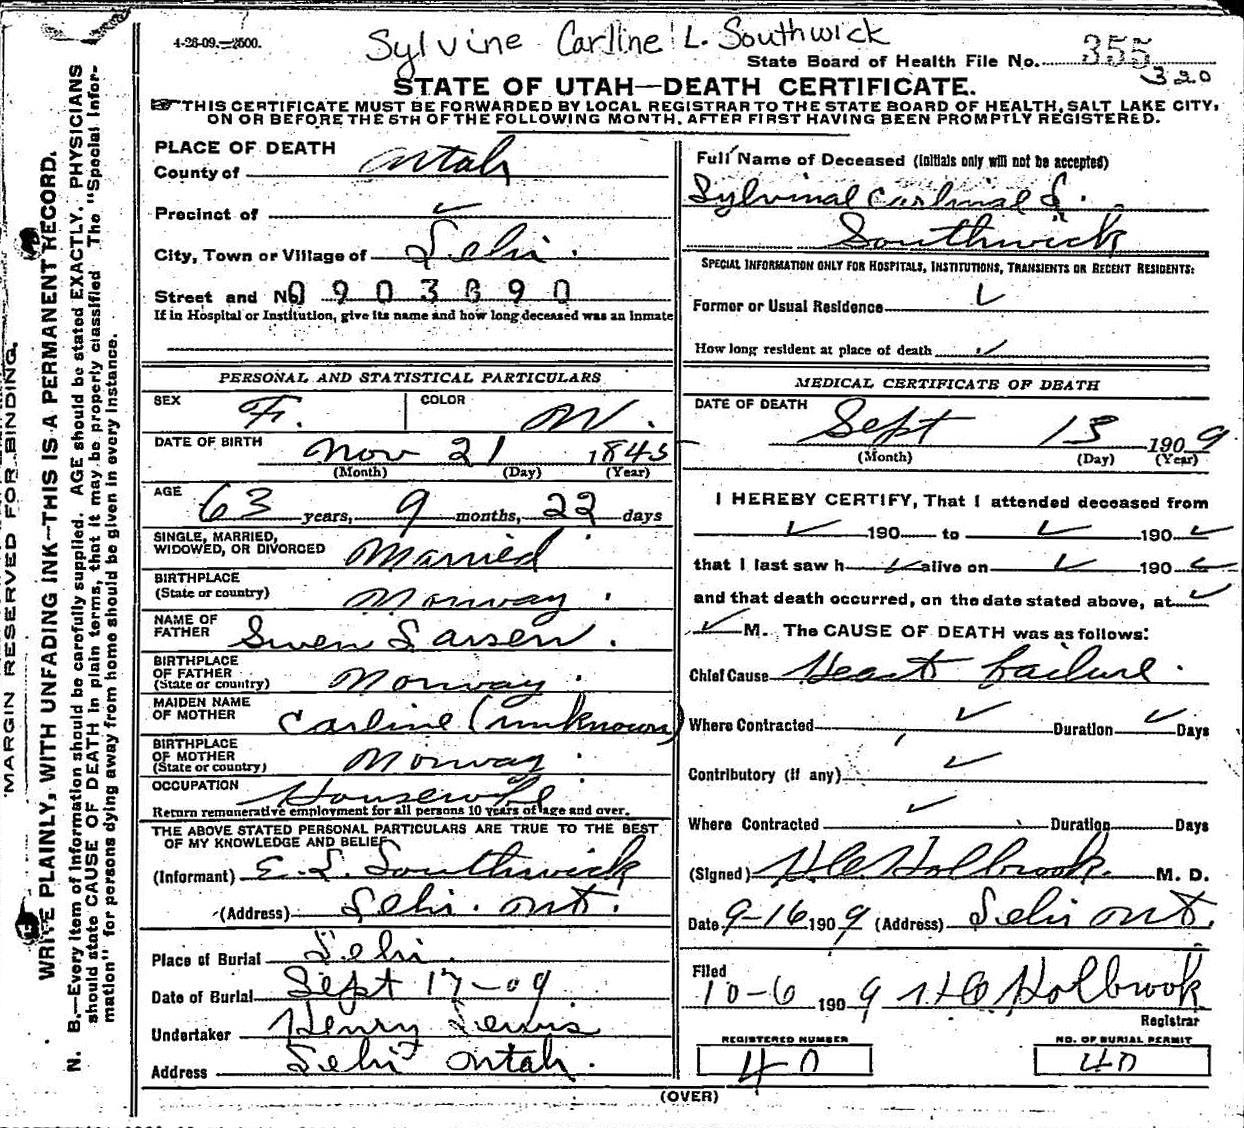 4-26-09.—2500.
Sylvine Carline L. Southwick
State Board of Health File No. 355
320
STATE OF UTAH—DEATH CERTIFICATE.
THIS CERTIFICATE MUST BE FORWARDED BY LOCAL REGISTRAR TO THE STATE BOARD OF HEALTH, SALT LAKE CITY,
ON OR BEFORE THE 5TH OF THE FOLLOWING MONTH, AFTER FIRST HAVING BEEN PROMPTLY REGISTERED.
MARGIN RESERVED FOR BINDING.
WRITE PLAINLY, WITH UNFADING INK—THIS IS A PERMANENT RECORD.
N. B.—Every item of information should be carefully supplied. AGE should be stated EXACTLY. PHYSICIANS
should state CAUSE OF DEATH in plain terms, that it may be properly classified The "Special Infor-
mation" for persons dying away from home should be given in every instance.
PLACE OF DEATH
County of Utah
Precinct of ✓
City, Town or Village of Lehi.
Street and No. 0903890
If in Hospital or Institution, give its name and how long deceased was an Inmate
PERSONAL AND STATISTICAL PARTICULARS
SEX F. COLOR W.
DATE OF BIRTH Nov 21 1845
(Month) (Day) (Year)
AGE 63 years, 9 months, 22 days
SINGLE, MARRIED,
WIDOWED, OR DIVORCED Married
BIRTHPLACE
(State or country) Norway.
NAME OF
FATHER Swen Larsen.
BIRTHPLACE
OF FATHER
(State or country) Norway.
MAIDEN NAME
OF MOTHER Carline (unknown)
BIRTHPLACE
OF MOTHER
(State or country) Norway.
OCCUPATION Housewife
Return remunerative employment for all persons 10 years of age and over.
THE ABOVE STATED PERSONAL PARTICULARS ARE TRUE TO THE BEST
OF MY KNOWLEDGE AND BELIEF
(Informant) E. L. Southwick
(Address) Lehi. Ut.
Place of Burial Lehi.
Date of Burial Sept 17-09
Undertaker Henry Lewis
Address Lehi Utah.
Full Name of Deceased (Initials only will not be accepted)
Sylvinal Carlinal L.
Southwick
SPECIAL INFORMATION ONLY FOR HOSPITALS, INSTITUTIONS, TRANSIENTS OR RECENT RESIDENTS:
Former or Usual Residence ✓
How long resident at place of death ✓
MEDICAL CERTIFICATE OF DEATH
DATE OF DEATH
Sept 13 1909
(Month) (Day) (Year)
I HEREBY CERTIFY, That I attended deceased from
✓ 190 to ✓ 190 ✓
that I last saw h ✓ alive on ✓ 190 ✓
and that death occurred, on the date stated above, at ✓
✓ M. The CAUSE OF DEATH was as follows:
Chief Cause Heart failure.
Where Contracted ✓ Duration ✓ Days
Contributory (if any) ✓
Where Contracted ✓ Duration Days
(Signed) H C Holbrook M. D.
Date 9-16 1909 (Address) Lehi Ut.
Filed
10-6 1909 H C Holbrook
Registrar
REGISTERED NUMBER
40
NO. OF BURIAL PERMIT
40
(OVER)